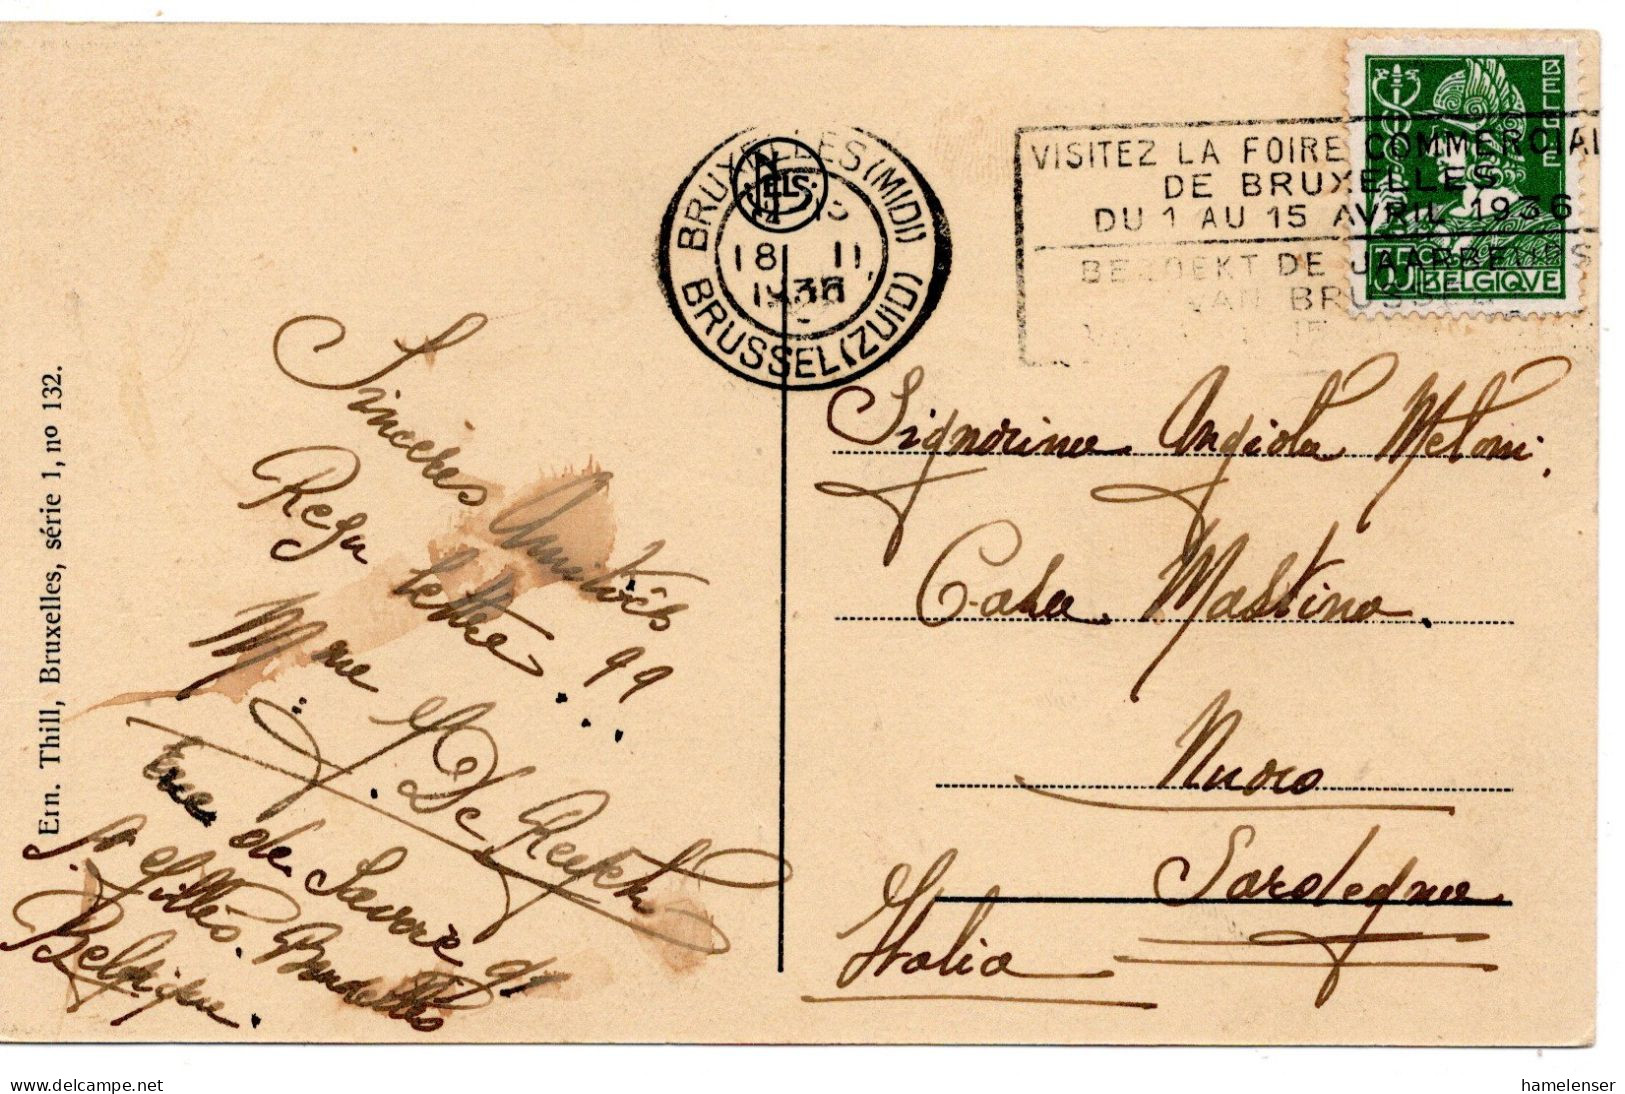 Ern. Thill, Bruxelles, série 1, nº 132.
NELS
BRUXELLES (MIDI)
18 II
1936
BRUSSEL (ZUID)
VISITEZ LA FOIRE COMMERCIAL
DE BRUXELLES
DU 1 AU 15 AVRIL 1936
BEZOEKT DE JAARBEURS
VAN BRUSSEL
BELGIE
35 C
BELGIQVE
Sincères Amitiés
Reçu lettre 99
Mme J. De
rue de Savoie 91
St Gilles. Bruxelles
Belgique.
Signorina Angiola Meloni.
Casa Mastino.
Nuoro
Sardegna
Italia
hamelenser